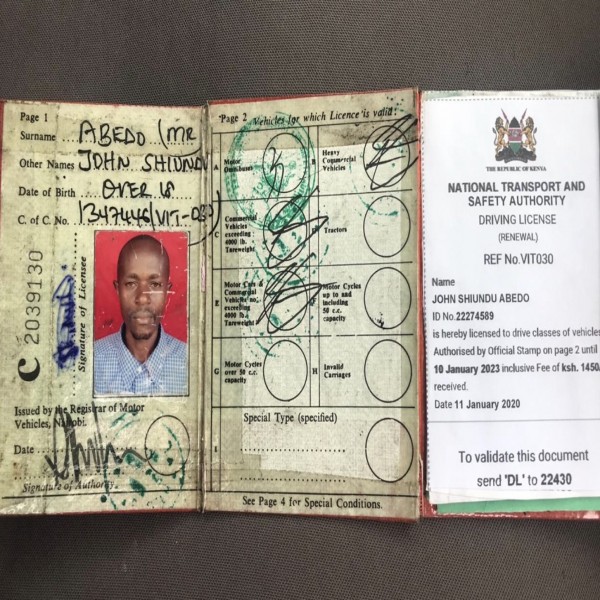 Page 1
Surname ABEDO (MR
Other Names JOHN SHIUNDU
Date of Birth OVER 18
C. of C. No.
C 2039130
Signature of Licensee
Issued by the Registrar of Motor
Vehicles, Nairobi.
Date
Signature of Authority
Page 2 Vehicles for which Licence is valid
A Motor Omnibuses
B Heavy Commercial Vehicles
C Commercial Vehicles exceeding 4000 lb. Tareweight
D Tractors
E Motor Cars & Commercial Vehicles not exceeding 4000 lb. Tareweight
Motor Cycles up to and including 50 c.c. capacity
G Motor Cycles over 50 c.c. capacity
H Invalid Carriages
Special Type (specified)
I
See Page 4 for Special Conditions.
THE REPUBLIC OF KENYA
NATIONAL TRANSPORT AND
SAFETY AUTHORITY
DRIVING LICENSE
(RENEWAL)
REF No.VIT030
Name
JOHN SHIUNDU ABEDO
ID No.22274589
is hereby licensed to drive classes of vehicles
Authorised by Official Stamp on page 2 until
10 January 2023 inclusive Fee of ksh. 1450/
received.
Date 11 January 2020
To validate this document
send 'DL' to 22430